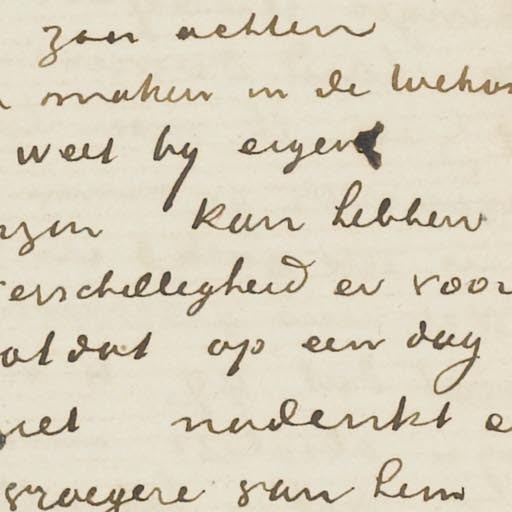 zou achten
maken in de
weet hy eigen
kan hebben
erschilligheid en voor
totdat op een dag
niet nadenkt e
vroegere van hem